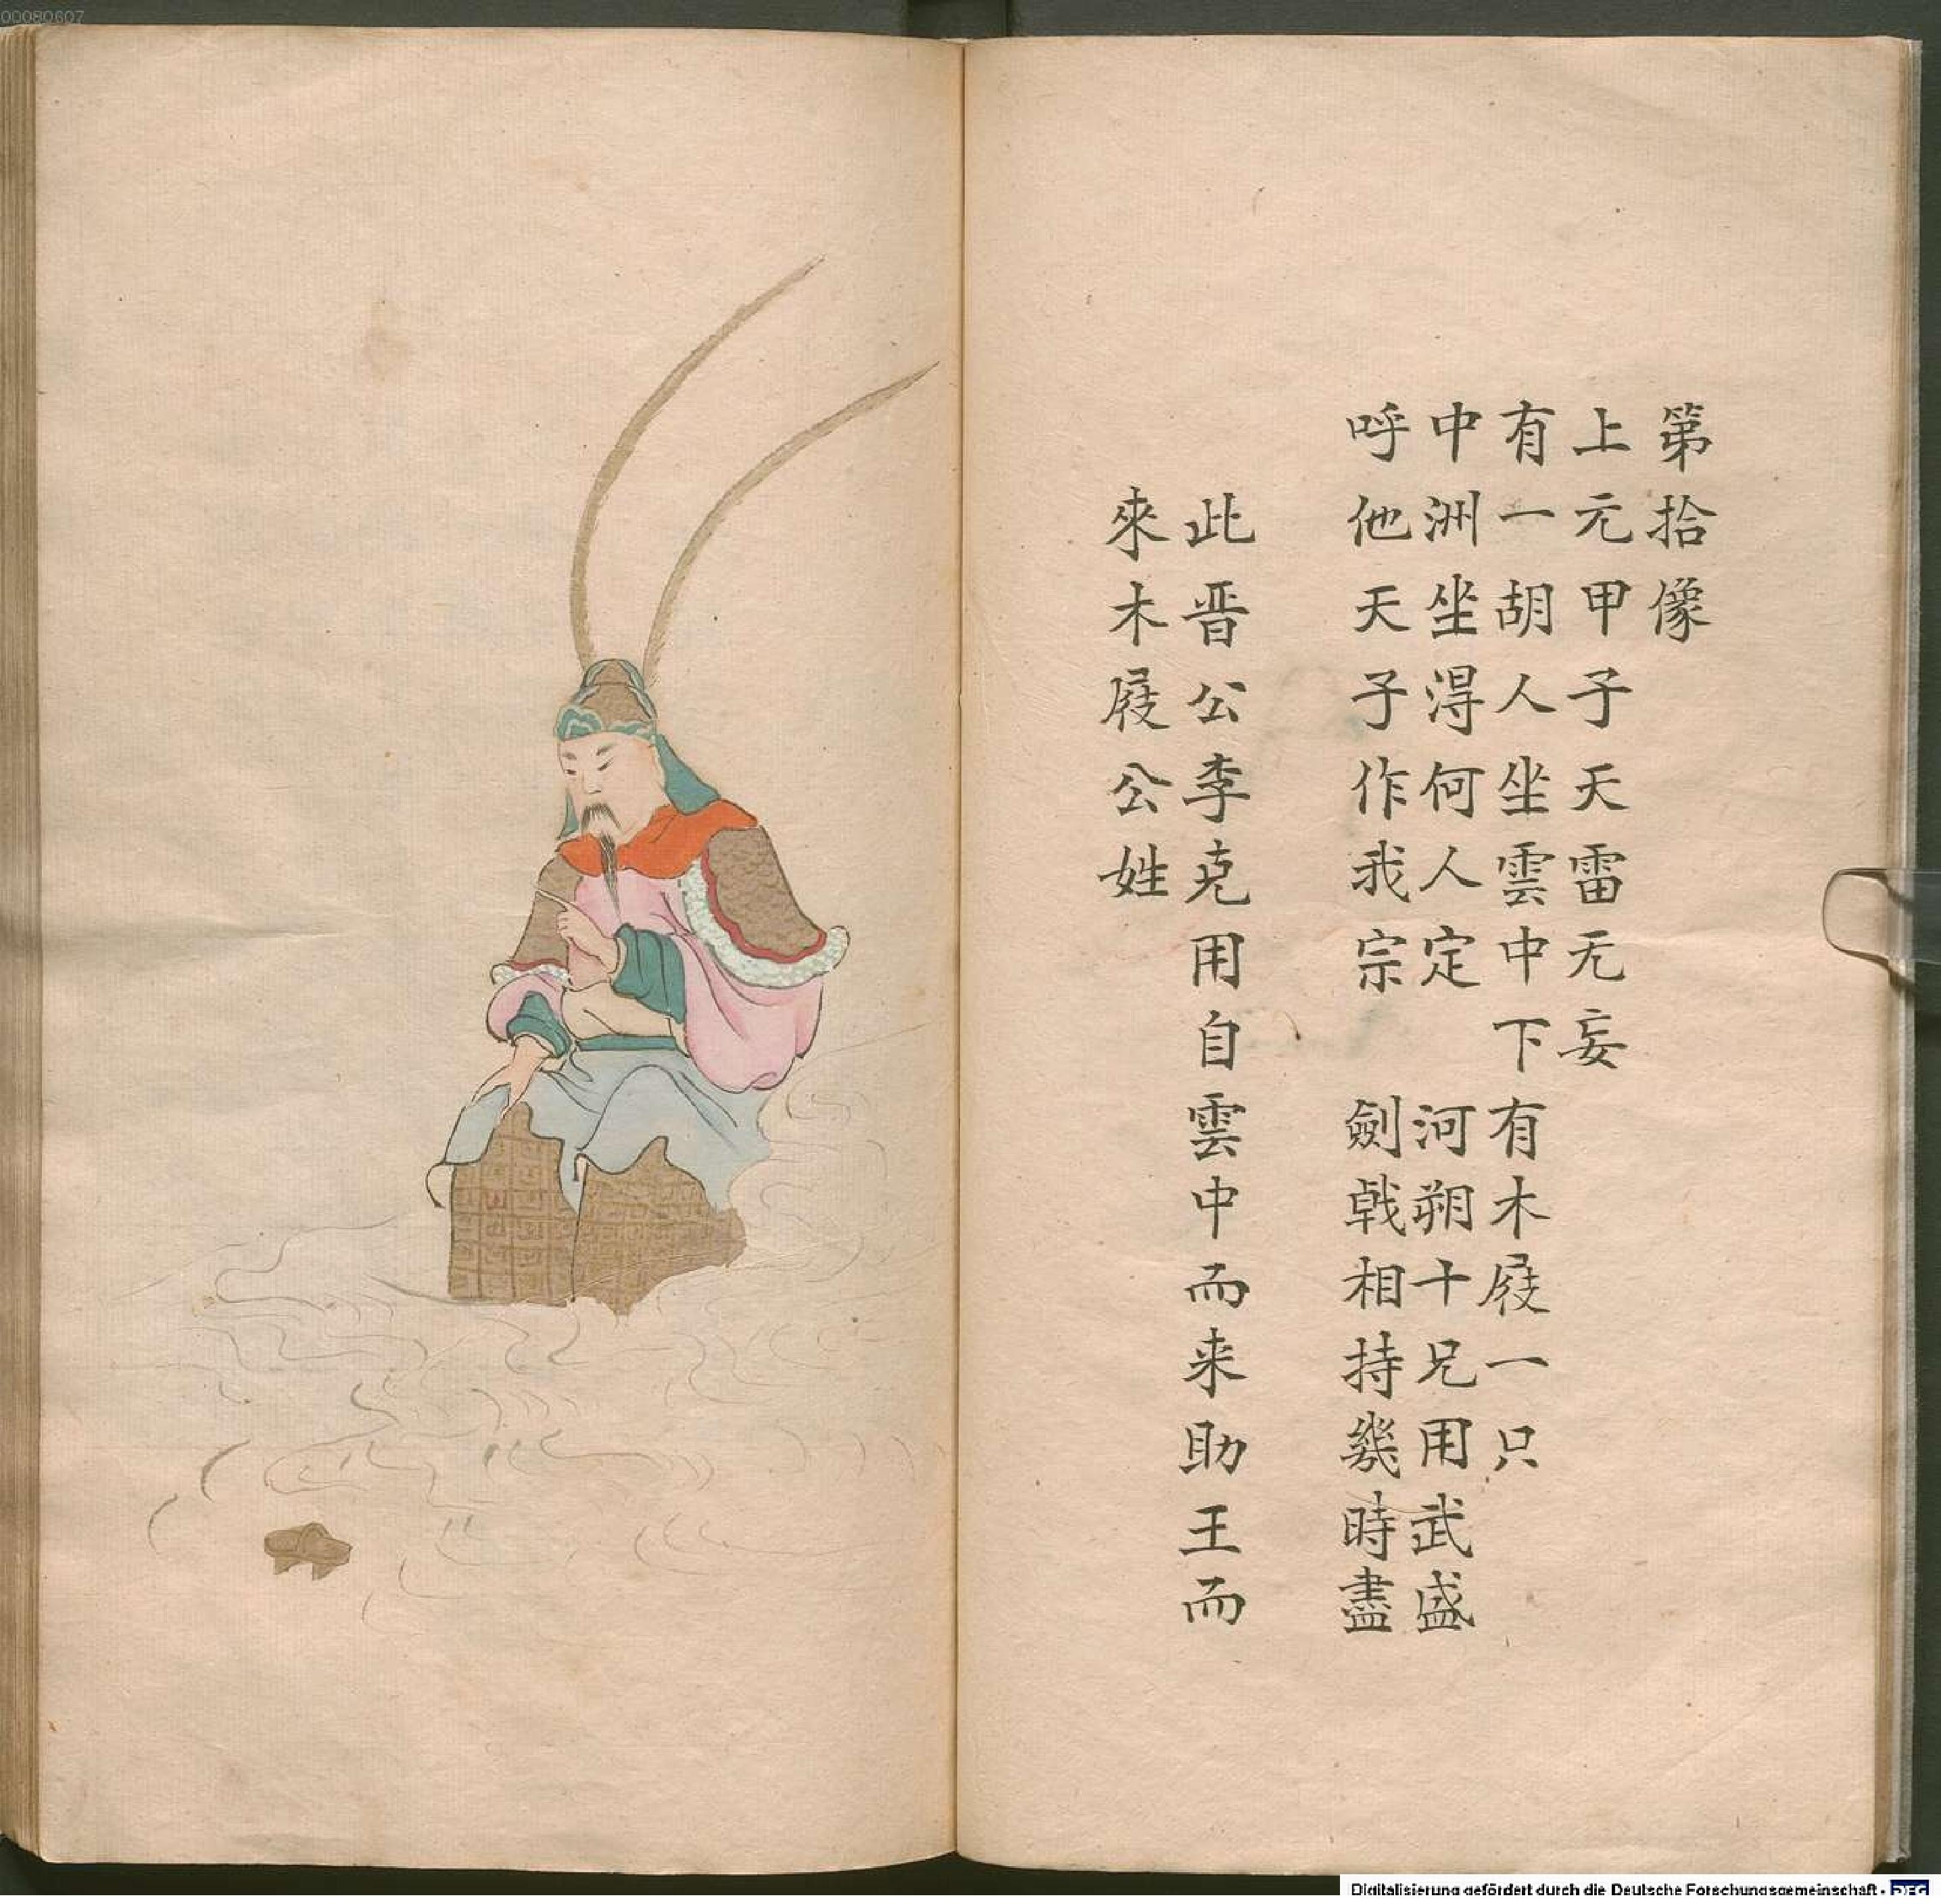 第拾像
上元甲子天雷无妄
有一胡人坐雲中下有木屐一只
中洲坐得何人定　河朔十兄用武盛
呼他天子作我宗　劍戟相持幾時盡
此晋公李克用自雲中而来助王而
來木屐公姓
00080607
Digitalisierung gefördert durch die Deutsche Forschungsgemeinschaft - DFG